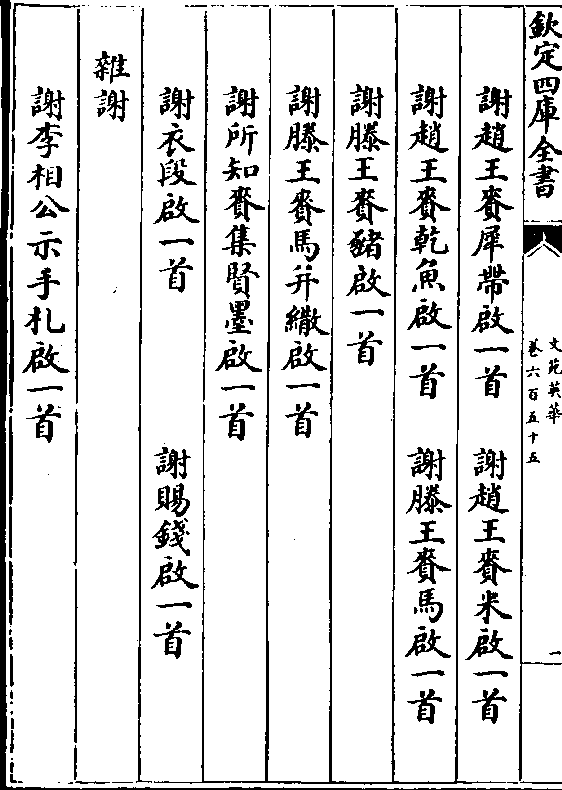 欽定四庫全書
文苑英華
卷六百五十五
一
謝趙王賚犀帶啟一首 謝趙王賚米啟一首
謝趙王賚乾魚啟一首 謝滕王賚馬啟一首
謝滕王賚豬啟一首
謝滕王賚馬并繖啟一首
謝所知賚集賢墨啟一首
謝衣段啟一首 謝賜錢啟一首
雜謝
謝李相公示手札啟一首